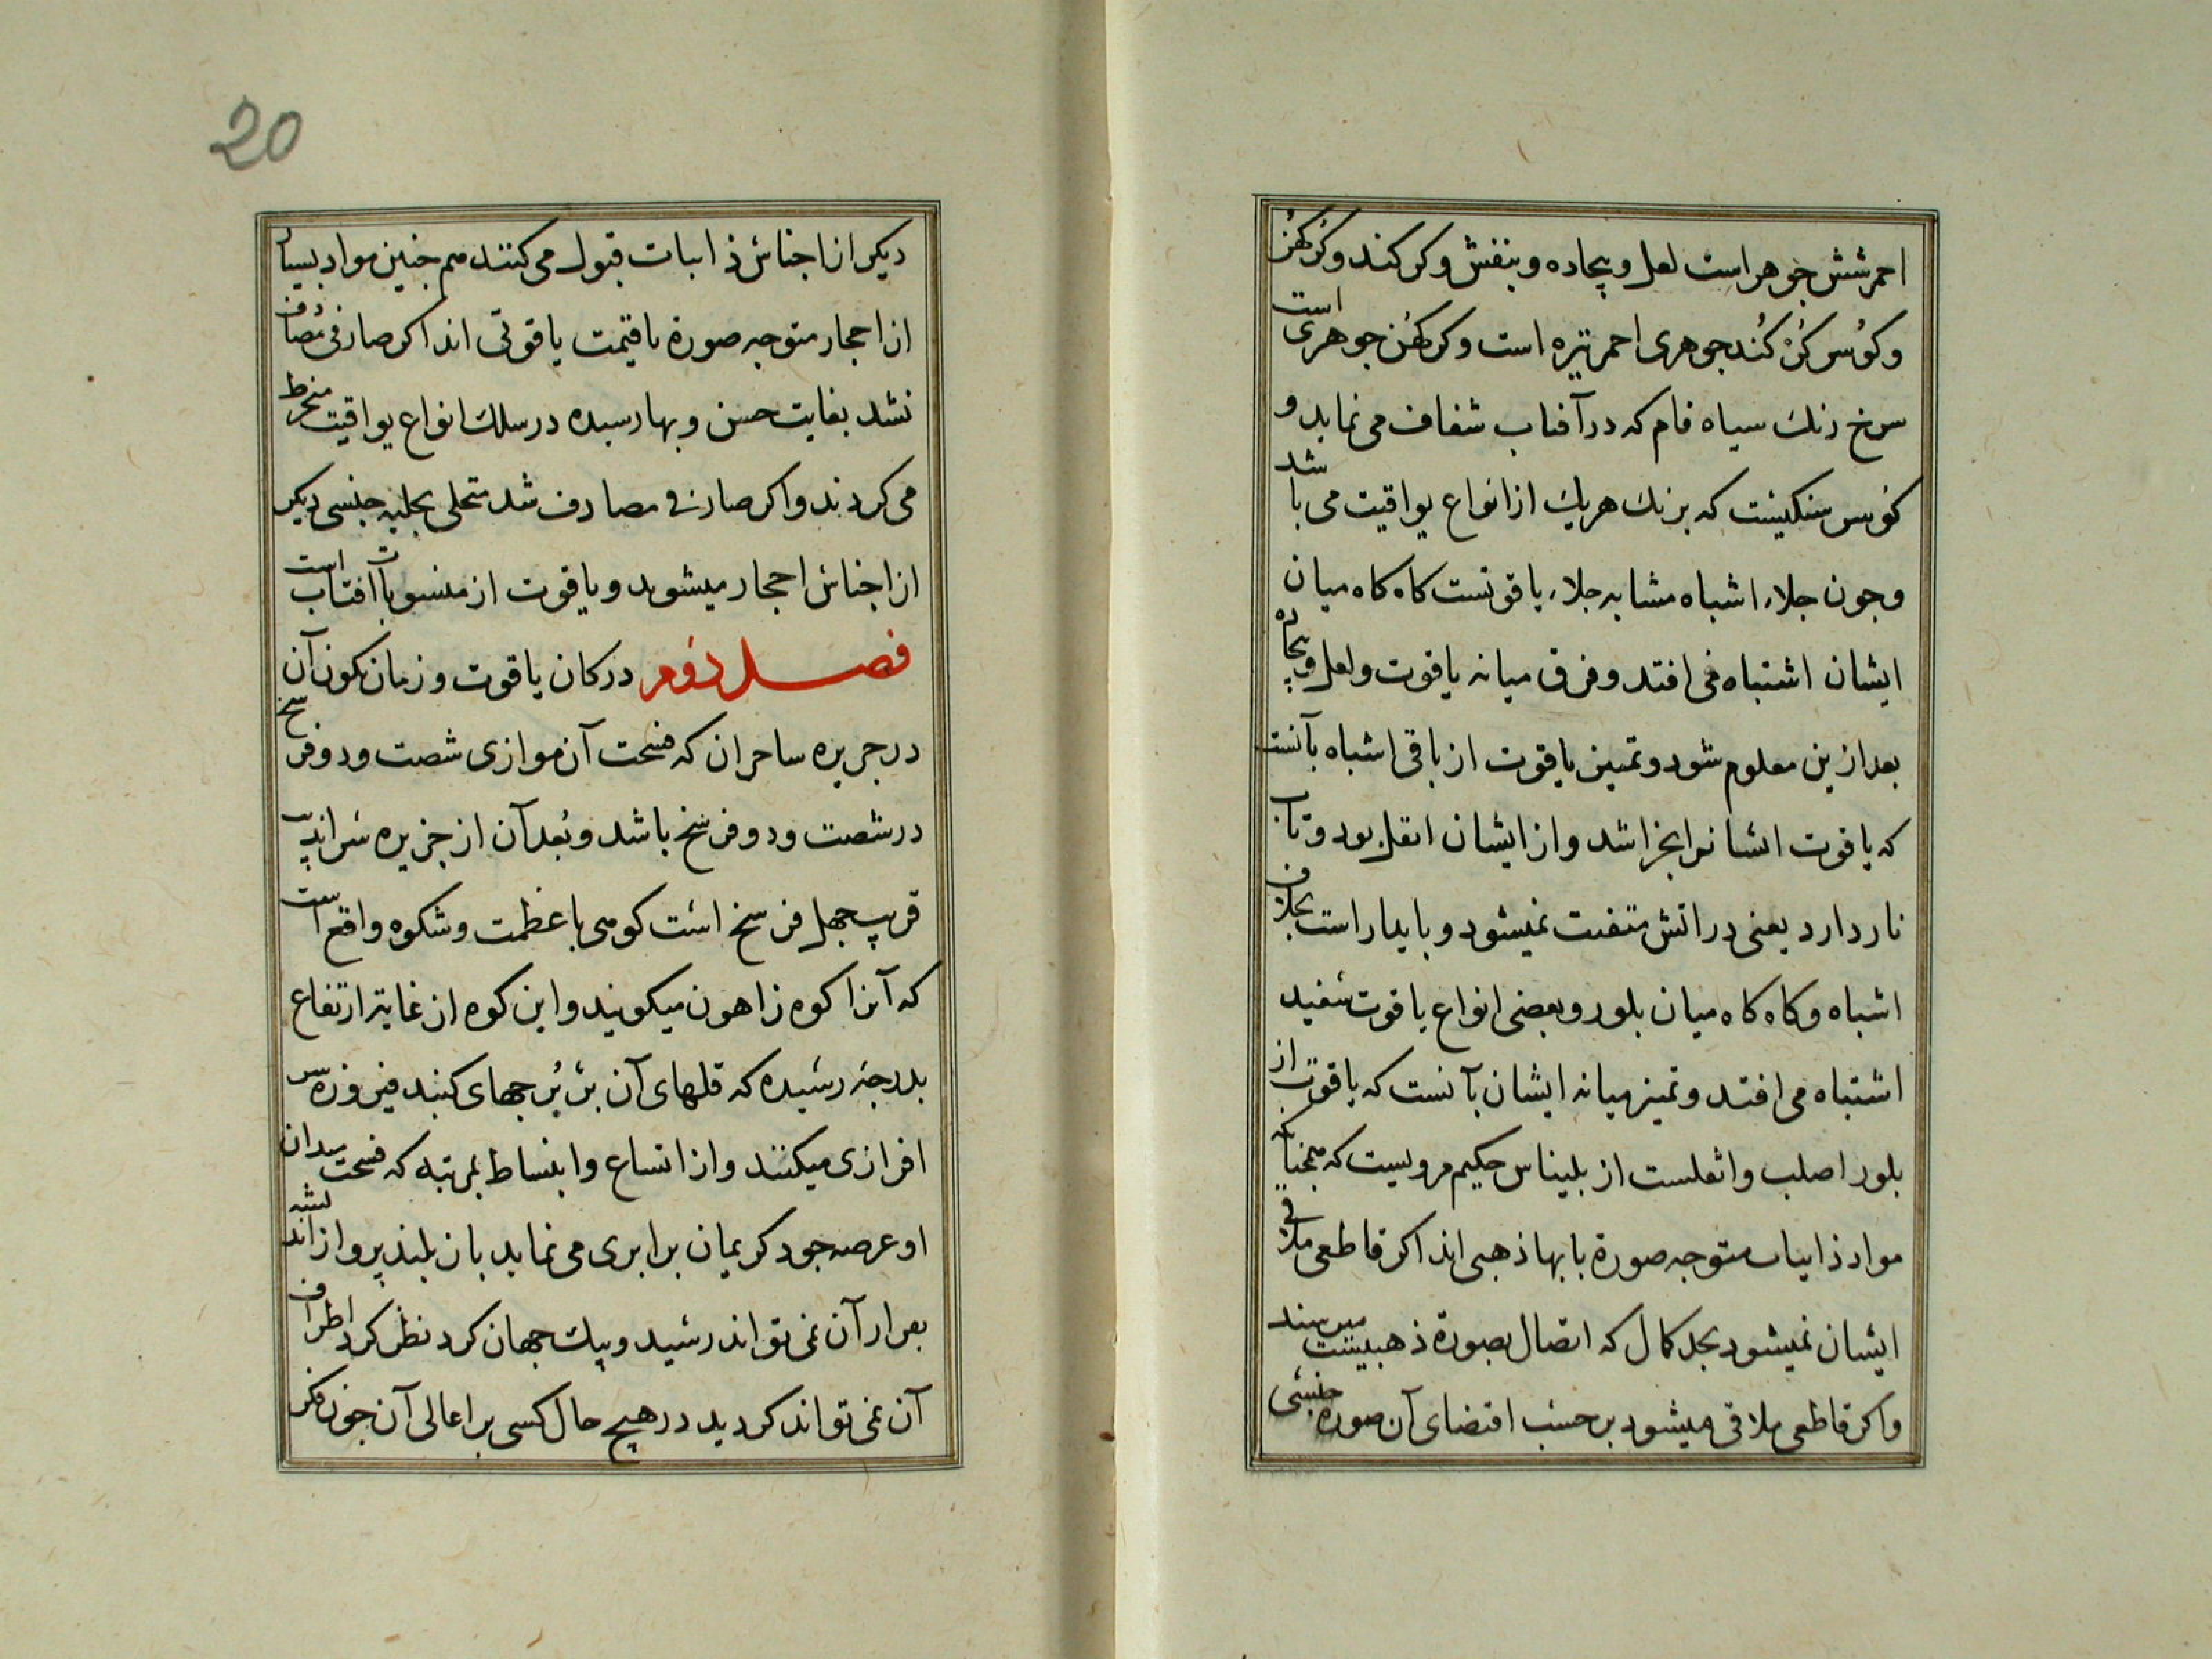 احمر شش جوهر است لعل و بیجاده و بنفش و کرکند و کرکهن
و کوس کرکند جوهری احمر تیره است و کرکهن جوهری است
سرخ رنك سیاه فام که در آفتاب شفاف می نماید و
کوس سنکیست که برنك هریك از انواع یواقیت می باشد
و جون جلاء اشباه مشابه جلاء یاقوتست کاه کاه میان
ایشان اشتباه می افتد و فرق میانه یاقوت و لعل و بیجاده
بعد ازین معلوم شود و تمییز یاقوت از باقی اشباه بآنست
که یاقوت ایشانرا بخراشد و از ایشان اثقل بود و تاب
نار دارد یعنی در اتش متفتت نمیشود و پایدار است بخلاف
اشباه و کاه کاه میان بلور و بعضی انواع یاقوت سفید
اشتباه می افتد و تمیز میانه ایشان بآنست که یاقوت از
بلور اصلب و اثقلست از بلیناس حکیم مرویست که همجنانکه
مواد ذایبات متوجه صورة بابها ذهبی اند اکر قاطعی ملاقی
ایشان نمیشود بحد کمال که اتصال بصورة ذهبیست میرسند
و اکر قاطعی ملاقی میشود بر حسب اقتضای آن صورة جنسی
20
دیکر از اجناس ذابیات قبول می کنند هم جنین مواد بسیار
از احجار متوجه صورة باقیمت یاقوتی اند اکر صارفی مصادف
نشد بغایت حسن و بها رسیده در سلك انواع یواقیت منخرط
می کردند و اکر صارفی مصادف شد متحلی بحلیه جنسی دیکر
از اجناس احجار میشوند و یاقوت از منسوبات آفتاب است
فصل دوم در کان یاقوت و زمان تکون آن
در جزیره ساحران که فسحت آن موازی شصت و دو فرسخ
در شصت و دو فرسخ باشد و بُعد آن از جزیره سراندیب
قریب جهل فرسخ است کوهی با عظمت و شکوه واقع است
که آنرا کوه زاهون میکویند و این کوه از غایة ارتفاع
بدرجۀ رسیده که قلهای آن بر بُرجهای کنبد فیروزه سر
افرازی میکنند و از اتساع و انبساط بمرتبه که فسحت میدان
او عرصه جود کریمان برابری می نماید باز بلند پرواز اندیشه
بفراز آن نمی تواند رسید و پیك جهان کرد نظر کرد اطراف
آن نمی تواند کردید در هیچ حال کسی بر اعالی آن جون فکر